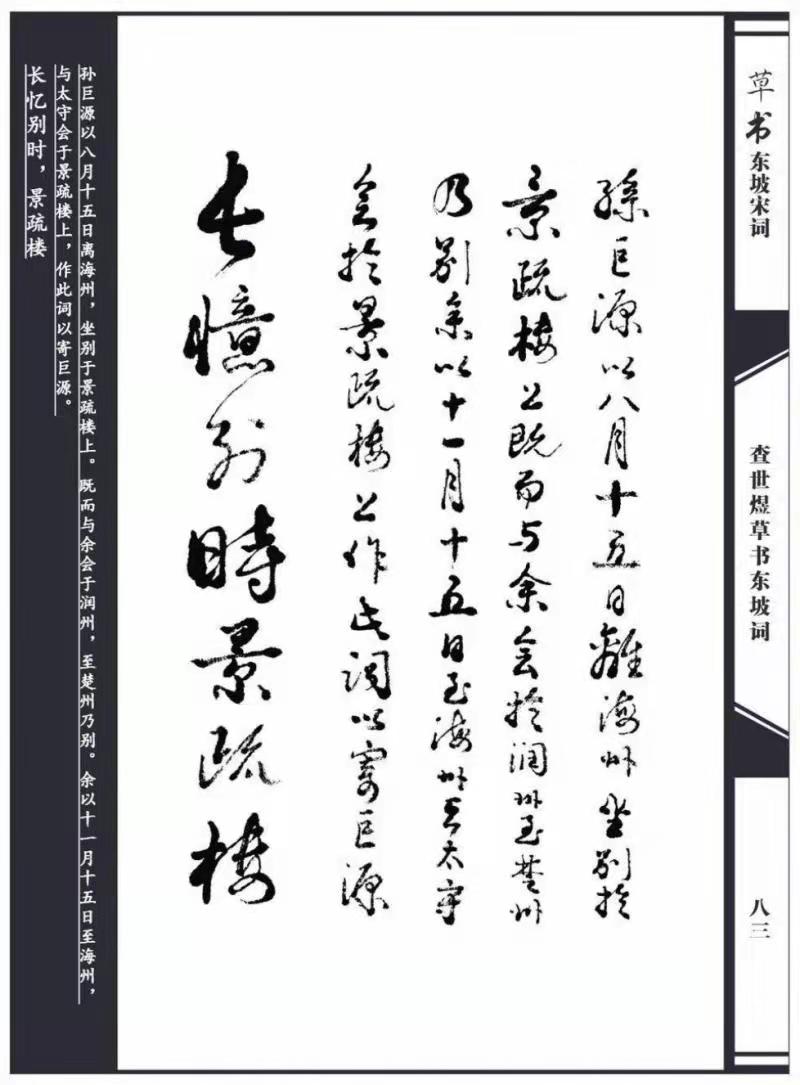 草书东坡宋词
查世煜草书东坡词
八三
孫巨源以八月十五日離海州坐别於
景疏楼上既而与余会於潤州至楚州
乃别余以十一月十五日至海州与太守
会於景疏楼上作此词以寄巨源
长憶别時景疏楼
孙巨源以八月十五日离海州，坐别于景疏楼上。既而与余会于润州，至楚州乃别。余以十一月十五日至海州，
与太守会于景疏楼上，作此词以寄巨源。
长忆别时，景疏楼